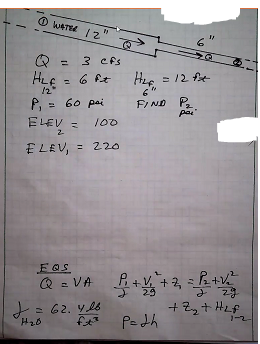 ① WATER 12" 6"
Q → → Q ②
Q = 3 cfs
HLf 12" = 6 fst HLf 6" = 12 fst
P₁ = 60 psi FIND P₂ psi
ELEV₂ = 100
ELEV₁ = 220
EQS
Q = VA P₁/γ + V₁²/2g + Z₁ = P₂/γ + V₂²/2g
γ H₂O = 62.4 lb/ft³ + Z₂ + HLf 1-2
P = γh